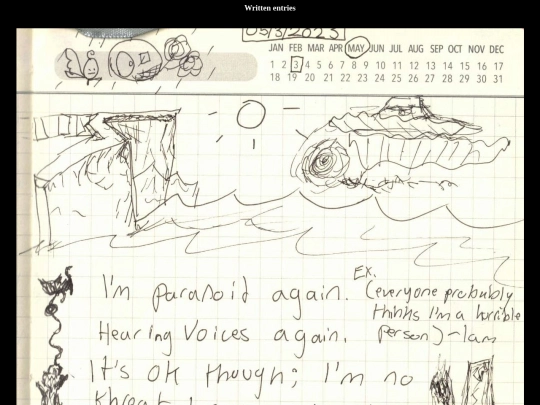 Written entries
05/3/2023
JAN FEB MAR APR MAY JUN JUL AUG SEP OCT NOV DEC
1 2 3 4 5 6 7 8 9 10 11 12 13 14 15 16 17
18 19 20 21 22 23 24 25 26 27 28 29 30 31
I'm paranoid again.
Ex.
(everyone probably
thinks I'm a horrible
person) - 1am
Hearing Voices again.
It's ok though; I'm no
threat